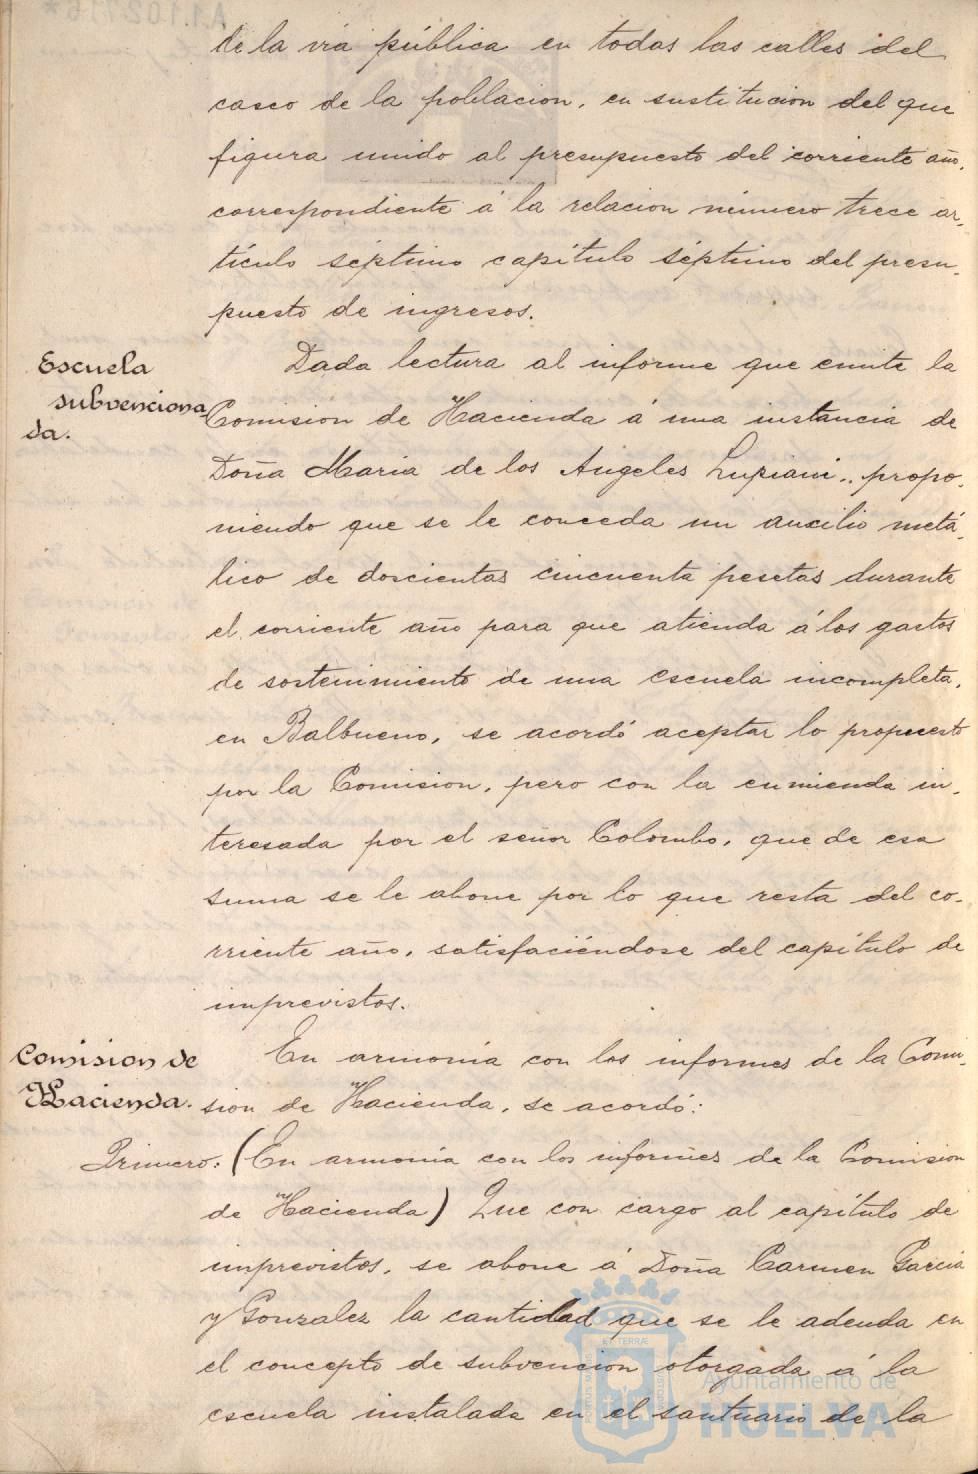 de la vía pública en todas las calles del
casco de la poblacion, en sustitucion del que
figura unido al presupuesto del corriente año,
correspondiente á la relacion número trece ar-
tículo séptimo capítulo séptimo del presu-
puesto de ingresos.
Escuela
subvenciona-
da.
Dada lectura al informe que emite la
Comision de Hacienda á una instancia de
Doña Maria de los Angeles Lupiani, propo-
niendo que se le conceda un aucilio metá-
lico de doscientas cincuenta pesetas durante
el corriente año para que atienda á los gastos
de sostenimiento de una escuela incompleta,
en Balbueno, se acordó aceptar lo propuesto
por la Comision, pero con la enmienda in-
teresada por el señor Colombo, que de esa
suma se le abone por lo que resta del co-
rriente año, satisfaciéndose del capítulo de
imprevistos.
Comision de
Hacienda.
En armonía con los informes de la Comi-
sion de Hacienda, se acordó:
Primero: (En armonía con los informes de la Comision
de Hacienda) Que con cargo al capítulo de
imprevistos, se abone á Doña Carmen Garcia
y Gonzalez la cantidad que se le adeuda en
el concepto de subvencion otorgada á la
escuela instalada en el santuario de la
Ayuntamiento de
HUELVA